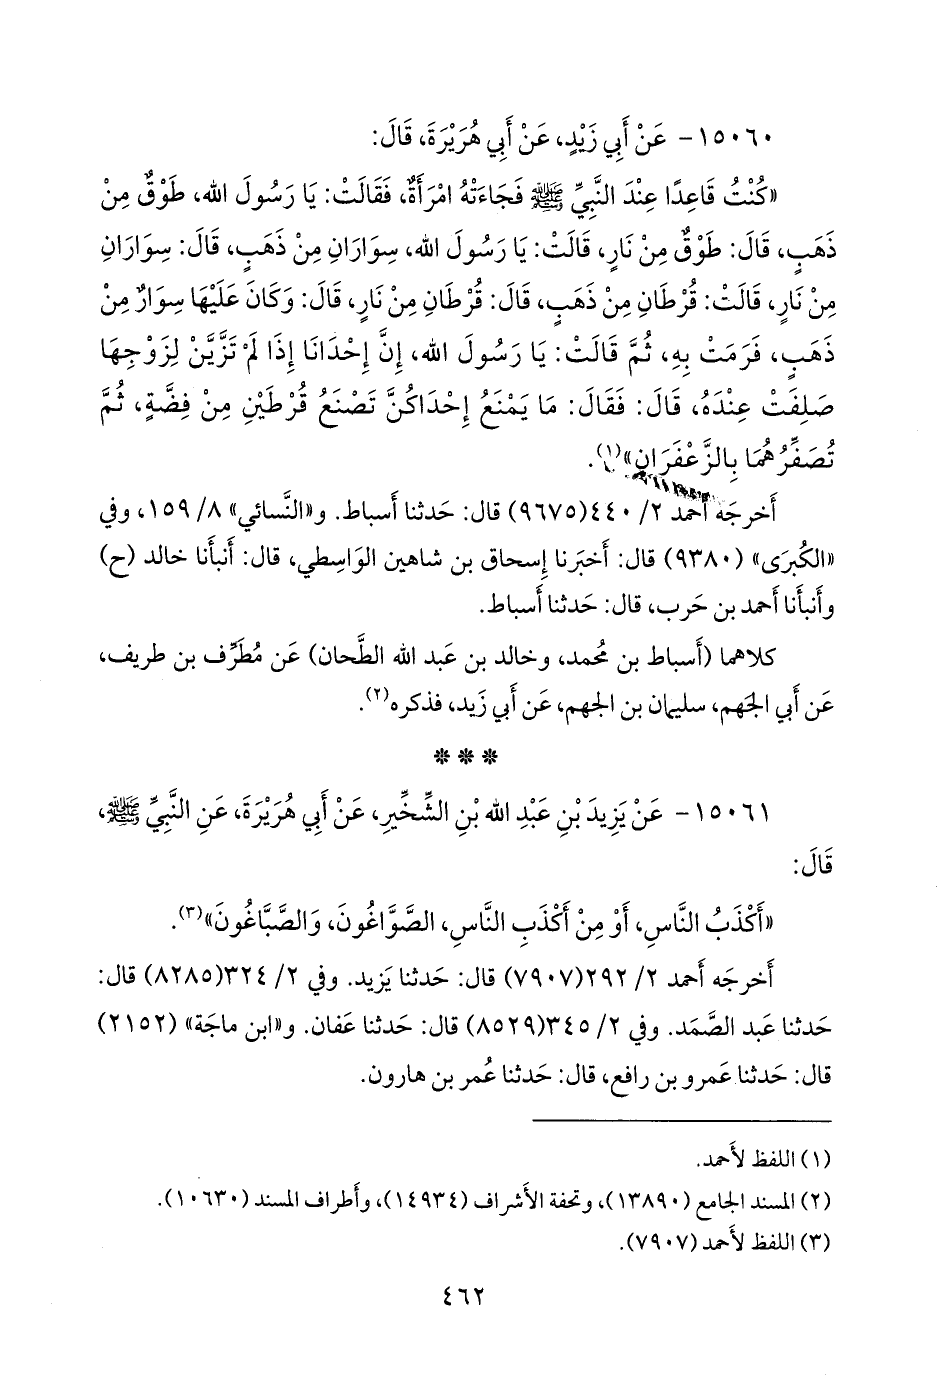 ١٥٠٦٠ - عَنْ أَبِي زَيْدٍ، عَنْ أَبِي هُرَيْرَةَ، قَالَ:
«كُنْتُ قَاعِدًا عِنْدَ النَّبِيِّ ﷺ فَجَاءَتْهُ امْرَأَةٌ، فَقَالَتْ: يَا رَسُولَ الله، طَوْقٌ مِنْ
ذَهَبٍ، قَالَ: طَوْقٌ مِنْ نَارٍ، قَالَتْ: يَا رَسُولَ الله، سِوَارَانِ مِنْ ذَهَبٍ، قَالَ: سِوَارَانِ
مِنْ نَارٍ، قَالَتْ: قُرْطَانِ مِنْ ذَهَبٍ، قَالَ: قُرْطَانِ مِنْ نَارٍ، قَالَ: وَكَانَ عَلَيْهَا سِوَارٌ مِنْ
ذَهَبٍ، فَرَمَتْ بِهِ، ثُمَّ قَالَتْ: يَا رَسُولَ الله، إِنَّ إِحْدَانَا إِذَا لَمْ تَزَّيَّنْ لِزَوْجِهَا
صَلِفَتْ عِنْدَهُ، قَالَ: فَقَالَ: مَا يَمْنَعُ إِحْدَاكُنَّ تَصْنَعُ قُرْطَيْنِ مِنْ فِضَّةٍ، ثُمَّ
تُصَفِّرُهُمَا بِالزَّعْفَرَانِ»(١).
أَخرجَه أَحمد ٢/ ٤٤٠(٩٦٧٥) قال: حَدثنا أَسباط. و«النَّسائي» ٨/ ١٥٩، وفي
«الكُبرَى» (٩٣٨٠) قال: أَخبَرنا إِسحاق بن شاهين الوَاسِطي، قال: أَنبأَنا خالد (ح)
وأَنبأَنا أَحمد بن حَرب، قال: حَدثنا أَسباط.
كلاهما (أَسباط بن مُحمد، وخالد بن عَبد الله الطَّحان) عَن مُطَرِّف بن طريف،
عَن أَبي الجَهم، سليمان بن الجهم، عَن أَبي زَيد، فذكره(٢).
* * *
١٥٠٦١ - عَنْ يَزِيدَ بْنِ عَبْدِ الله بْنِ الشِّخِّيرِ، عَنْ أَبِي هُرَيْرَةَ، عَنِ النَّبِيِّ ﷺ،
قَالَ:
«أَكْذَبُ النَّاسِ، أَوْ مِنْ أَكْذَبِ النَّاسِ، الصَّوَّاغُونَ، وَالصَّبَّاغُونَ»(٣).
أَخرجَه أَحمد ٢/ ٢٩٢(٧٩٠٧) قال: حَدثنا يَزيد. وفي ٢/ ٣٢٤(٨٢٨٥) قال:
حَدثنا عَبد الصَّمَد. وفي ٢/ ٣٤٥(٨٥٢٩) قال: حَدثنا عَفان. و«ابن ماجَة» (٢١٥٢)
قال: حَدثنا عَمرو بن رافع، قال: حَدثنا عُمر بن هارون.
(١) اللفظ لأَحمد.
(٢) المسند الجامع (١٣٨٩٠)، وتحفة الأشراف (١٤٩٣٤)، وأَطراف المسند (١٠٦٣٠).
(٣) اللفظ لأَحمد (٧٩٠٧).
٤٦٢